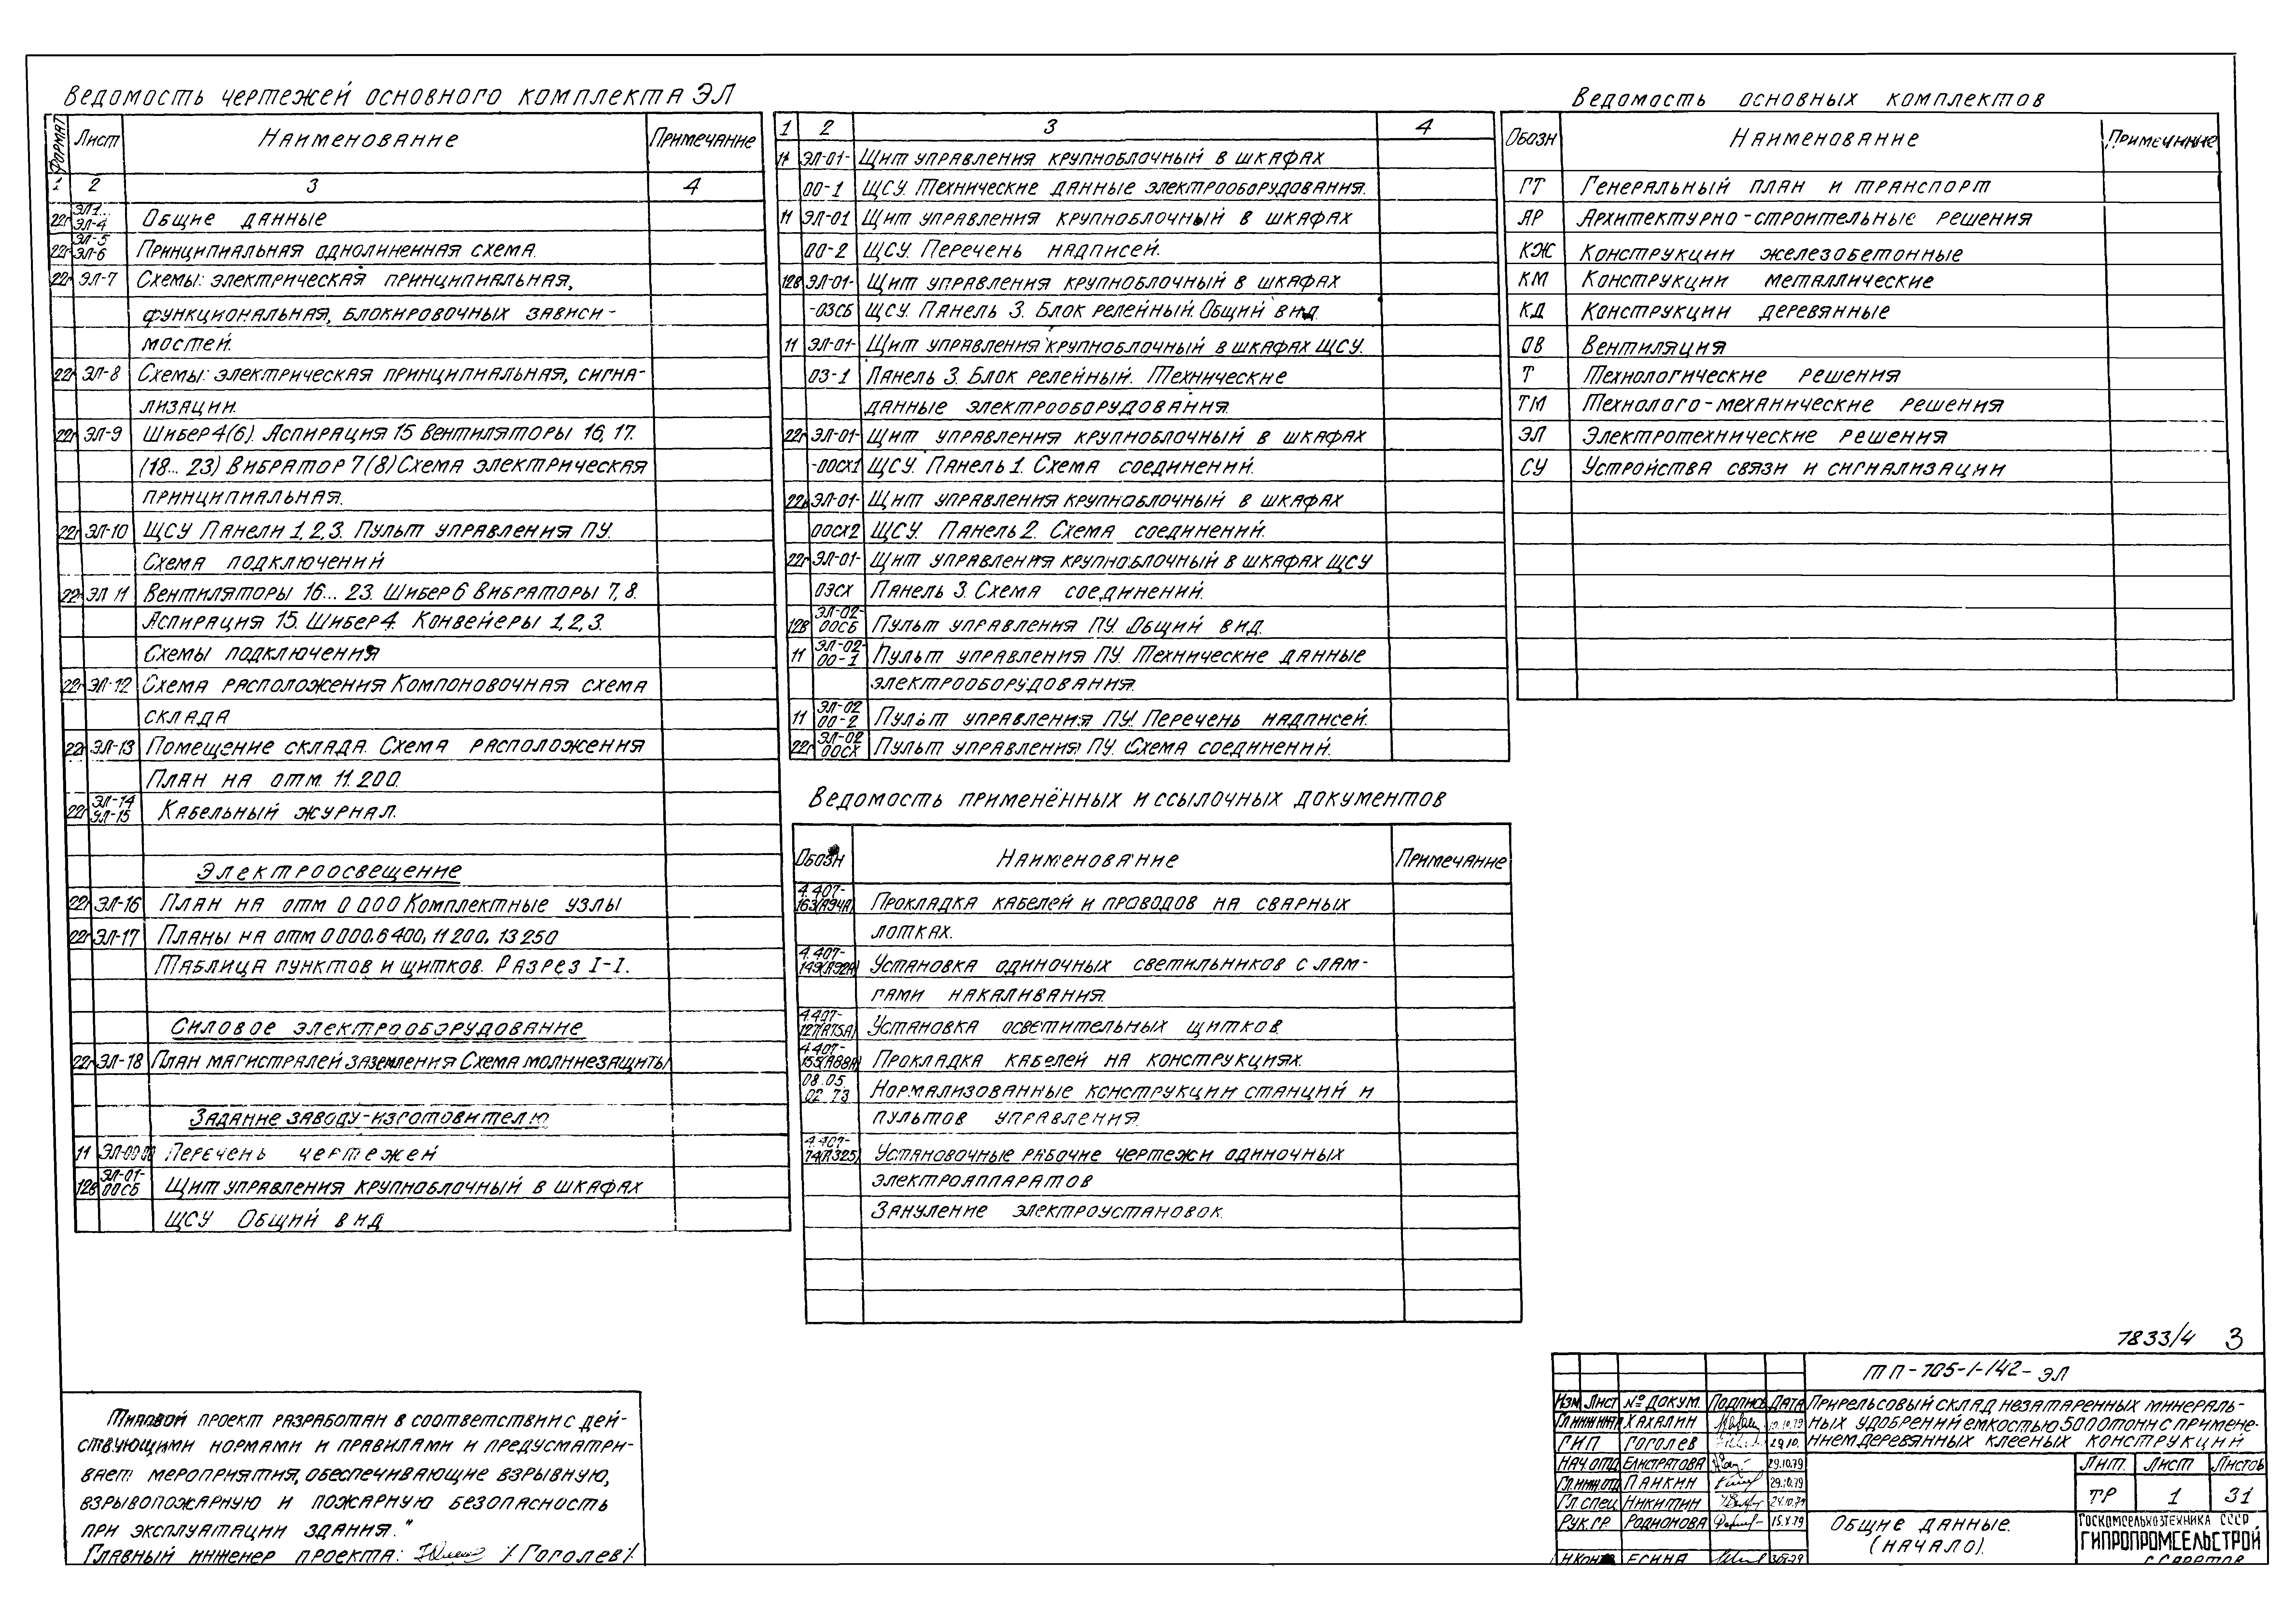 Ведомость чертежей основного комплекта ЭЛ
Формат Лист Наименование Примечание
1 2 3 4
22г ЭЛ1... ЭЛ-4 Общие данные
22г ЭЛ-5 ЭЛ-6 Принципиальная однолиненная схема.
22г ЭЛ-7 Схемы: электрическая принципиальная,
функциональная, блокировочных зависи-
мостей.
22г ЭЛ-8 Схемы: электрическая принципиальная, сигна-
лизации.
22г ЭЛ-9 Шибер 4(6). Аспирация 15 Вентиляторы 16, 17.
(18... 23) Вибратор 7(8) Схема электрическая
принципиальная.
22г ЭЛ-10 ЩСУ Панели 1, 2, 3. Пульт управления ПУ.
Схема подключений
22г ЭЛ 11 Вентиляторы 16... 23. Шибер 6 Вибраторы 7, 8.
Аспирация 15. Шибер 4. Конвейеры 1, 2, 3.
Схемы подключения
22г ЭЛ-12 Схема расположения Компоновочная схема
склада
22г ЭЛ-13 Помещение склада. Схема расположения
План на отм. 11.200.
22г ЭЛ-14 ЭЛ-15 Кабельный журнал.
Электроосвещение
22г ЭЛ-16 План на отм 0 000 Комплектные узлы
22г ЭЛ-17 Планы на отм 0 000. 6 400, 11 200, 13 250
Таблица пунктов и щитков. Разрез I-I.
Силовое электрооборудование
22г ЭЛ-18 План магистралей заземления Схема молниезащиты
Задание заводу-изготовителю
11 ЭЛ-00 00 Перечень чертежей
12В ЭЛ-01- 00СБ Щит управления крупноблочный в шкафах
ЩСУ Общий вид
1 2 3 4
11 ЭЛ-01- Щит управления крупноблочный в шкафах
00-1 ЩСУ. Технические данные электрооборудования.
11 ЭЛ-01 Щит управления крупноблочный в шкафах
00-2 ЩСУ. Перечень надписей.
12В ЭЛ-01- Щит управления крупноблочный в шкафах
-03СБ ЩСУ. Панель 3. Блок релейный. Общий вид.
11 ЭЛ-01- Щит управления крупноблочный в шкафах ЩСУ.
03-1 Панель 3. Блок релейный. Технические
данные электрооборудования.
22г ЭЛ-01- Щит управления крупноблочный в шкафах
-00СХ1 ЩСУ. Панель 1. Схема соединений.
22г ЭЛ-01- Щит управления крупноблочный в шкафах
00СХ2 ЩСУ. Панель 2. Схема соединений.
22г ЭЛ-01- Щит управления крупноблочный в шкафах ЩСУ
03СХ Панель 3. Схема соединений.
12В ЭЛ-02- 00СБ Пульт управления ПУ. Общий вид.
11 ЭЛ-02- 00-1 Пульт управления ПУ. Технические данные
электрооборудования.
11 ЭЛ-02 00-2 Пульт управления ПУ. Перечень надписей.
22г ЭЛ-02 00СХ Пульт управления ПУ. Схема соединений.
Ведомость применённых и ссылочных документов
Обозн Наименование Примечание
4.407- 163(А94А) Прокладка кабелей и проводов на сварных
лотках.
4.407- 149(А92А) Установка одиночных светильников с лам-
пами накаливания.
4.407- 127(А75А) Установка осветительных щитков
4.407- 155(А88А) Прокладка кабелей на конструкциях.
08.05. 02 73 Нормализованные конструкции станций и
пультов управления.
4.407- 74(А325) Установочные рабочие чертежи одиночных
электроаппаратов
Зануление электроустановок.
Ведомость основных комплектов
Обозн Наименование Примечание
ГТ Генеральный план и транспорт
АР Архитектурно-строительные решения
КЖ Конструкции железобетонные
КМ Конструкции металлические
КД Конструкции деревянные
ОВ Вентиляция
Т Технологические решения
ТМ Технолого-механические решения
ЭЛ Электротехнические решения
СУ Устройства связи и сигнализации
Типовой проект разработан в соответствии с дей-
ствующими нормами и правилами и предусматри-
вает мероприятия, обеспечивающие взрывную,
взрывопожарную и пожарную безопасность
при эксплуатации здания."
Главный инженер проекта: /Гоголев/.
7833/4 3
ТП-705-1-142-ЭЛ
Изм Лист № докум. Подпись Дата
Гл инж инта Хахалин 10.79
ГИП Гоголев 29.10.
Нач.отд Елистратова 29.10.79
Гл.инж.отд Панкин 29.10.79
Гл спец Никитин 24.10.79
Рук.гр. Родионова 15.X.79
Н.конт Есина
Прирельсовый склад незатаренных минераль-
ных удобрений емкостью 5000 тонн с примене-
нием деревянных клееных конструкций
Лит. Лист Листов
ТР 1 31
Общие данные.
(начало).
Госкомсельхозтехника СССР
ГИПРОПРОМСЕЛЬСТРОЙ
г. Саратов